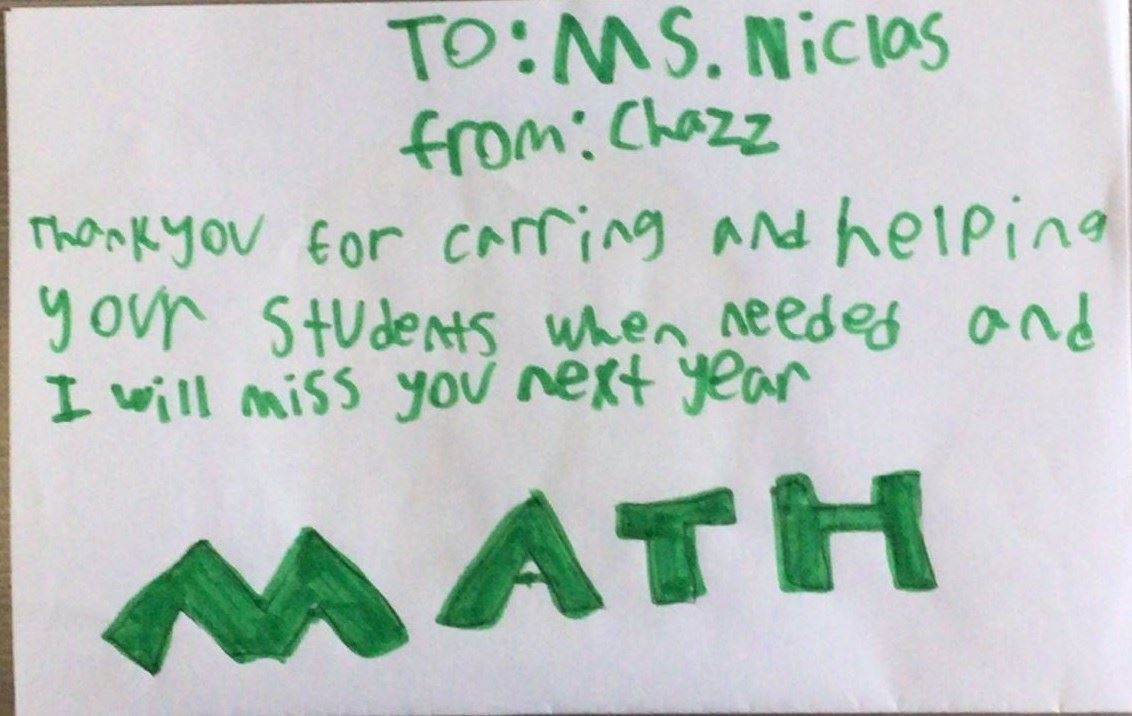 TO: MS. Niclas
from: Chazz
Thank you for carring and helping
your students when needed and
I will miss you next year
MATH